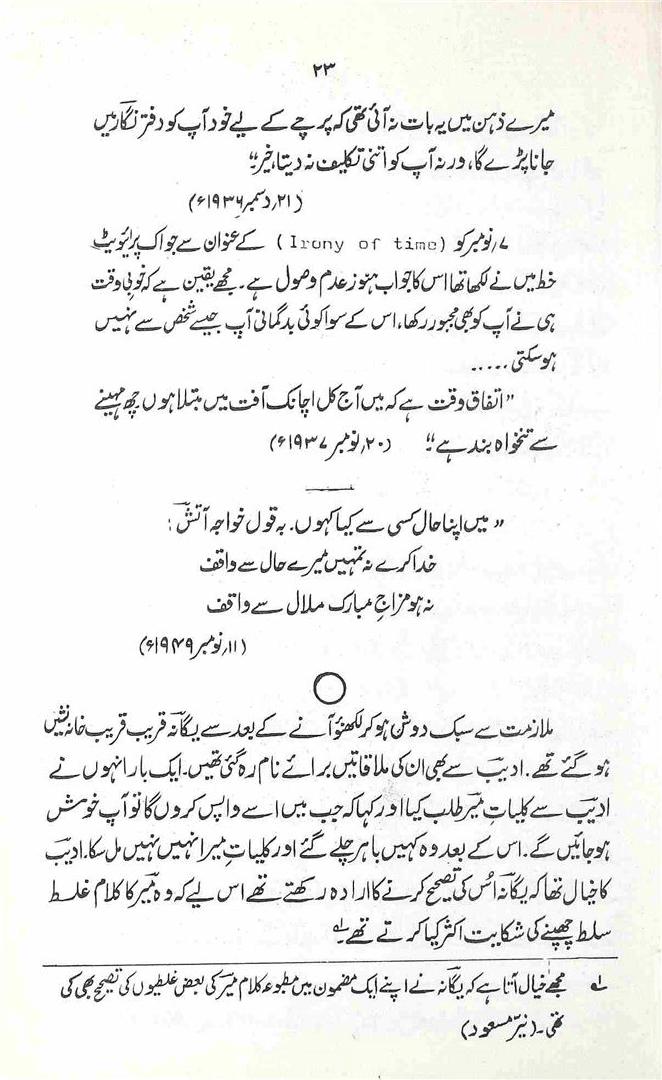 ۲۳
میرے ذہن میں یہ بات نہ آئی تھی کہ پرچے کے لیے خود آپ کو دفتر نگار میں
جانا پڑے گا، ورنہ آپ کو اتنی تکلیف نہ دیتا، خیر"
(۲۱؍دسمبر ۱۹۳۶ء)
۷؍نومبر کو (Irony of time) کے عنوان سے جو اک پرائیویٹ
خط میں نے لکھا تھا اس کا جواب ہنوز عدم وصول ہے۔ مجھے یقین ہے کہ خوبیِ وقت
ہی نے آپ کو بھی مجبور رکھا، اس کے سوا کوئی بدگمانی آپ جیسے شخص سے نہیں
ہو سکتی .....
"اتفاق وقت ہے کہ میں آج کل اچانک آفت میں مبتلا ہوں چھ مہینے
سے تنخواہ بند ہے" (۲۰؍نومبر ۱۹۳۷ء)
"میں اپنا حال کسی سے کیا کہوں. بہ قول خواجہ آتشؔ:
خدا کرے نہ تمہیں میرے حال سے واقف
نہ ہو مزاجِ مبارک ملال سے واقف
(۱۱؍نومبر ۱۹۴۹ء)
ملازمت سے سبک دوش ہو کر لکھنؤ آنے کے بعد سے یگانہؔ قریب قریب خانہ نشیں
ہو گئے تھے. ادیبؔ سے بھی ان کی ملاقاتیں برائے نام رہ گئی تھیں۔ ایک بار انہوں نے
ادیبؔ سے کلیات میرؔ طلب کیا اور کہا کہ جب میں اسے واپس کروں گا تو آپ خوش
ہو جائیں گے۔ اس کے بعد وہ کہیں باہر چلے گئے اور کلیاتِ میر انہیں نہیں مل سکا۔ ادیبؔ
کا خیال تھا کہ یگانہؔ اُس کی تصحیح کرنے کا ارادہ رکھتے تھے اس لیے کہ وہ میرؔ کا کلام غلط
سلط چھپنے کی شکایت اکثر کیا کرتے تھے۔ لہ
لہ مجھے خیال آتا ہے کہ یگانہؔ نے اپنے ایک مضمون میں مطبوعہ کلام میرؔ کی بعض غلطیوں کی تصحیح بھی کی
تھی۔ (نیرؔ مسعود)